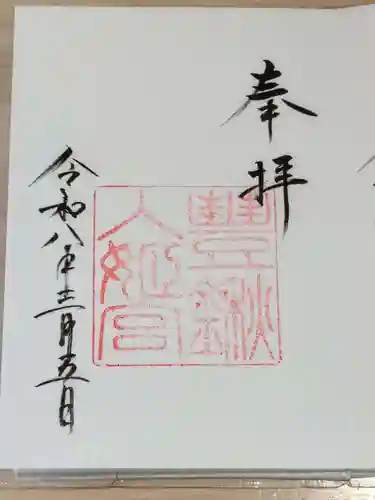 奉拝
豊鍬
入姫宮
令和八年三月五日